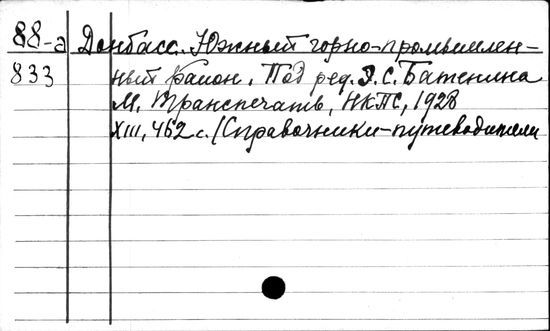 88-а Донбасс. Южный горно-промышлен-
833 ный район. Под ред. Э.С. Батенина
М. Транспечать, НКПС, 1928
XIII, 462 с. (Справочники-путеводители